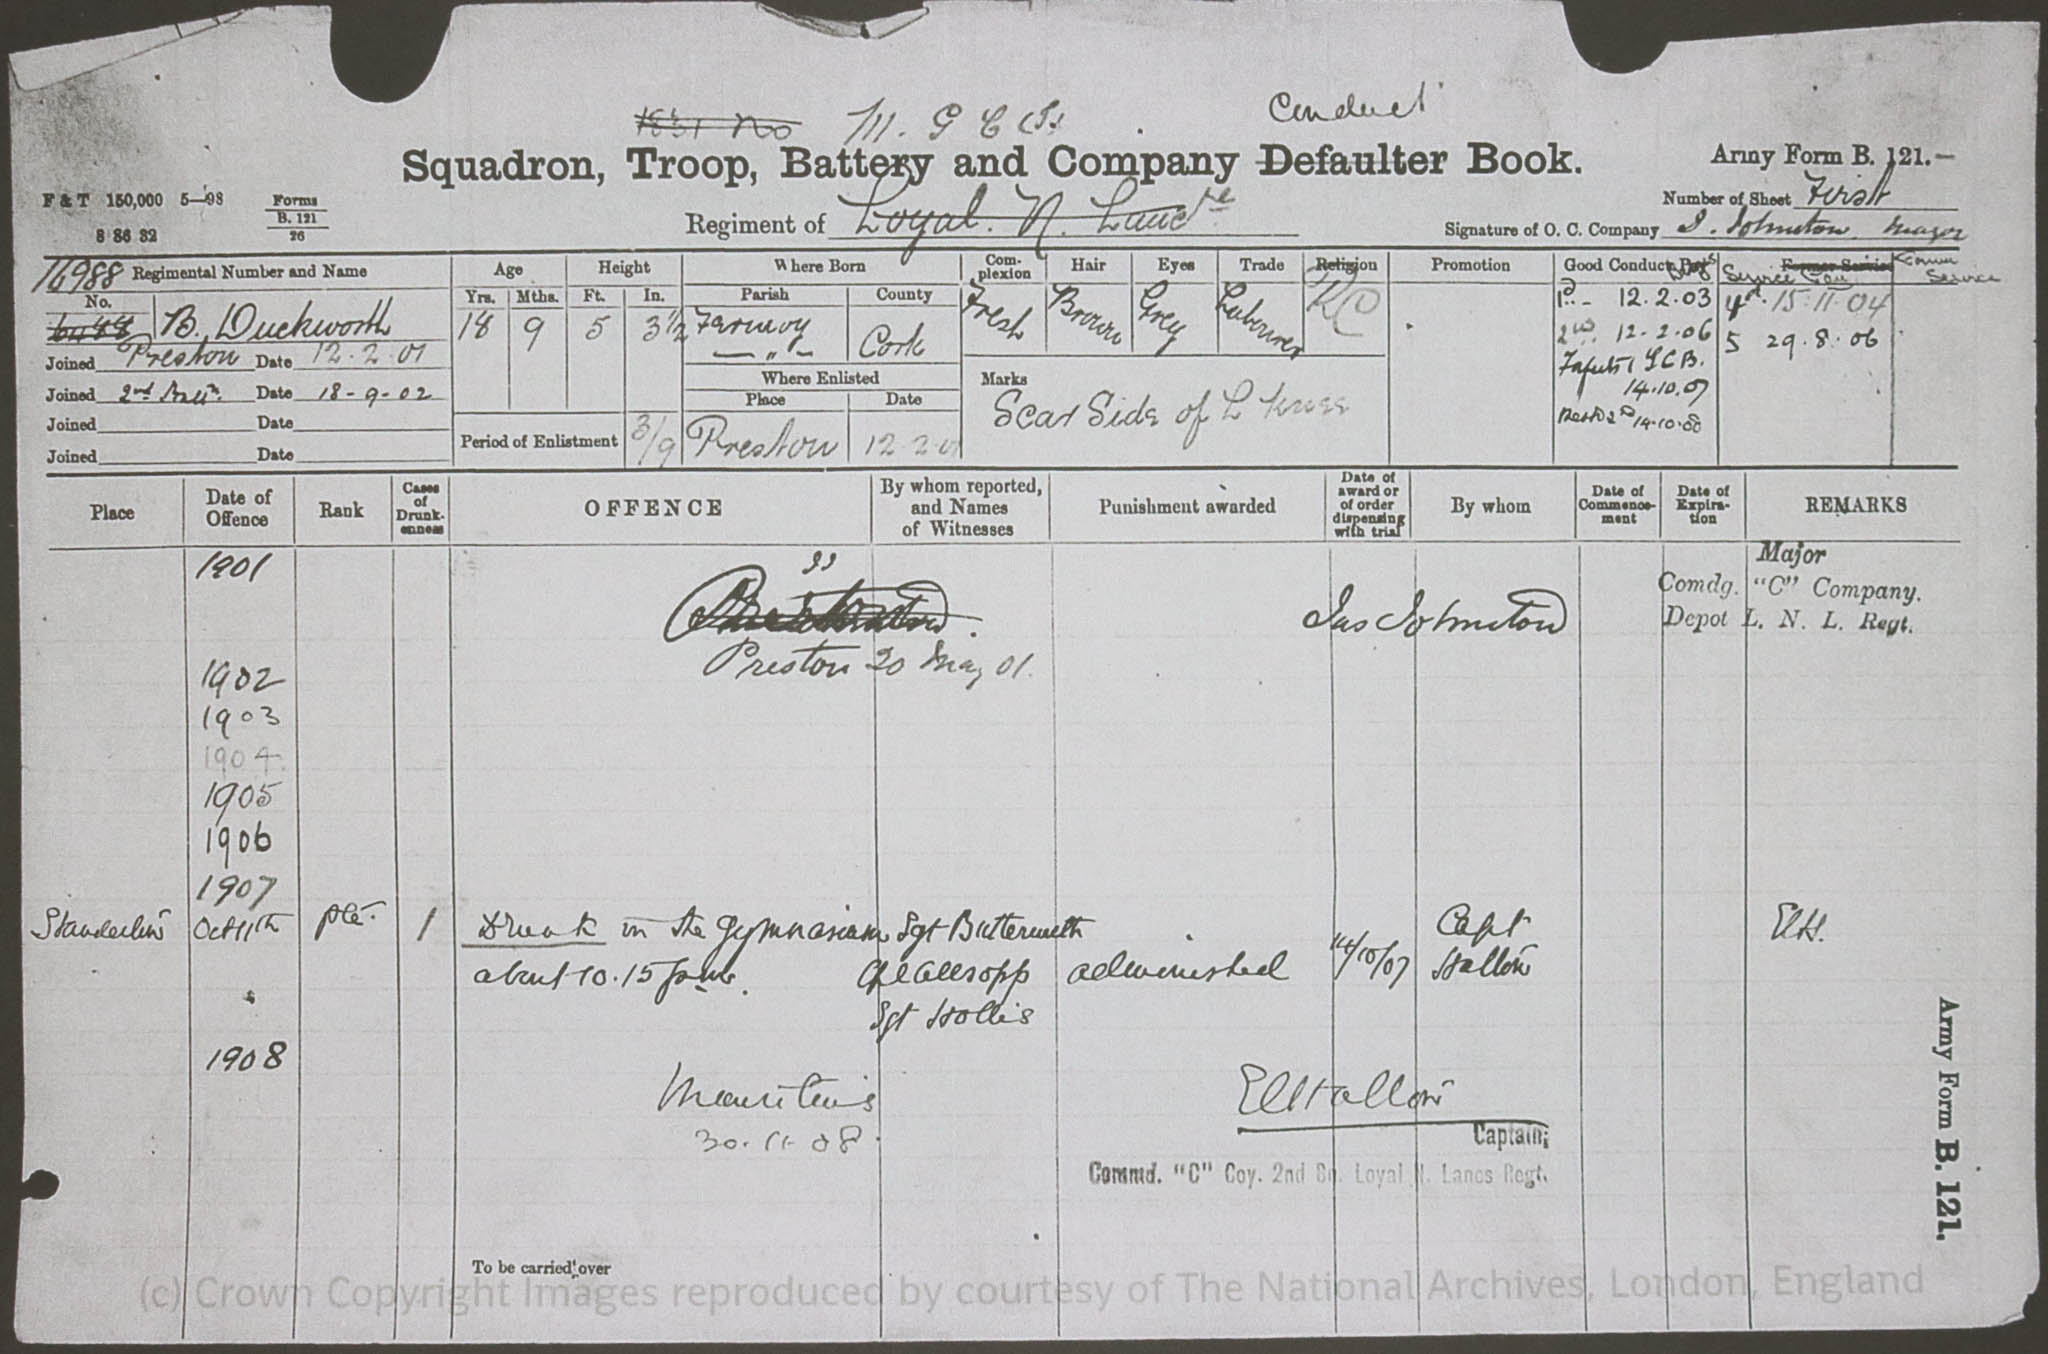 M. G. C.
Conduct
Squadron, Troop, Battery and Company Defaulter Book.
Army Form B. 121.
F & T 150,000 5—98
Forms
B. 121
26
8 86 32
Regiment of Loyal N. Lanc
Number of Sheet First
Signature of O. C. Company J. Johnston Major
16988 Regimental Number and Name
Age
Height
Where Born
Com-
plexion
Hair
Eyes
Trade
Religion
Promotion
Good Conduct
Former Service
No.
Yrs.
Mths.
Ft.
In.
Parish
County
B. Duckworth
18
9
5
3 1/2
Fermoy
— " —
Cork
Fresh
Brown
Grey
Labourer
RC
12.2.03
12.2.06
Forfeits 1 G C B.
14.10.07
14.10.08
4th 15.11.04
5 29.8.06
Joined Preston Date 12.2.01
Joined 2nd Battn. Date 18-9-02
Joined Date
Joined Date
Where Enlisted
Place
Date
Period of Enlistment
3/9
Preston
12.2.01
Marks
Scar Side of L Knee
Place
Date of
Offence
Rank
Cases
of
Drunk-
enness
OFFENCE
By whom reported,
and Names
of Witnesses
Punishment awarded
Date of
award or
of order
dispensing
with trial
By whom
Date of
Commence-
ment
Date of
Expira-
tion
REMARKS
1901
Jas Johnston
Major
Comdg. "C" Company.
Depot L. N. L. Regt.
Preston 20 May 01.
1902
1903
1904
1905
1906
1907
Oct 11th
Pte.
1
Drunk in the Gymnasium
about 10.15 p.m.
Sgt Butterworth
Cpl Allsopp
Sgt Hollis
admonished
14/10/07
Capt
Hallow
1908
Mauritius
30.11.08.
Captain,
Commd. "C" Coy. 2nd Bn. Loyal N. Lancs Regt.
To be carried over
Army Form B. 121.
(c) Crown Copyright Images reproduced by courtesy of The National Archives, London, England